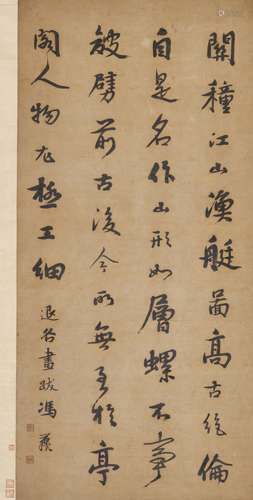 關穜江山漁艇啚高古絕倫
自是名作山形如層螺不事
皴劈前古後今所無至於亭
閣人物尤極工細 退谷畫跋馮